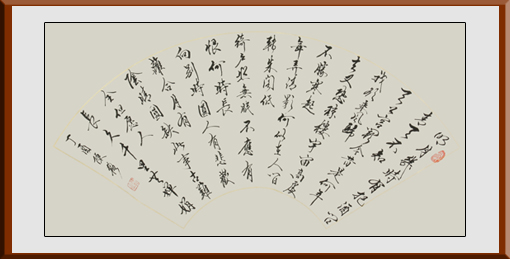 明月幾時有把酒問
青天不知
天上宮闕今夕是何年
我欲乘風歸
去又恐瓊樓玉宇高處
不勝寒起
舞弄清影何似在人間
轉朱閣低
綺戶照無眠不應有
恨何時長
向別時圓人有悲歡
離合月有
陰晴圓缺此事古難
全但願人
長久千里共嬋娟
丁酉